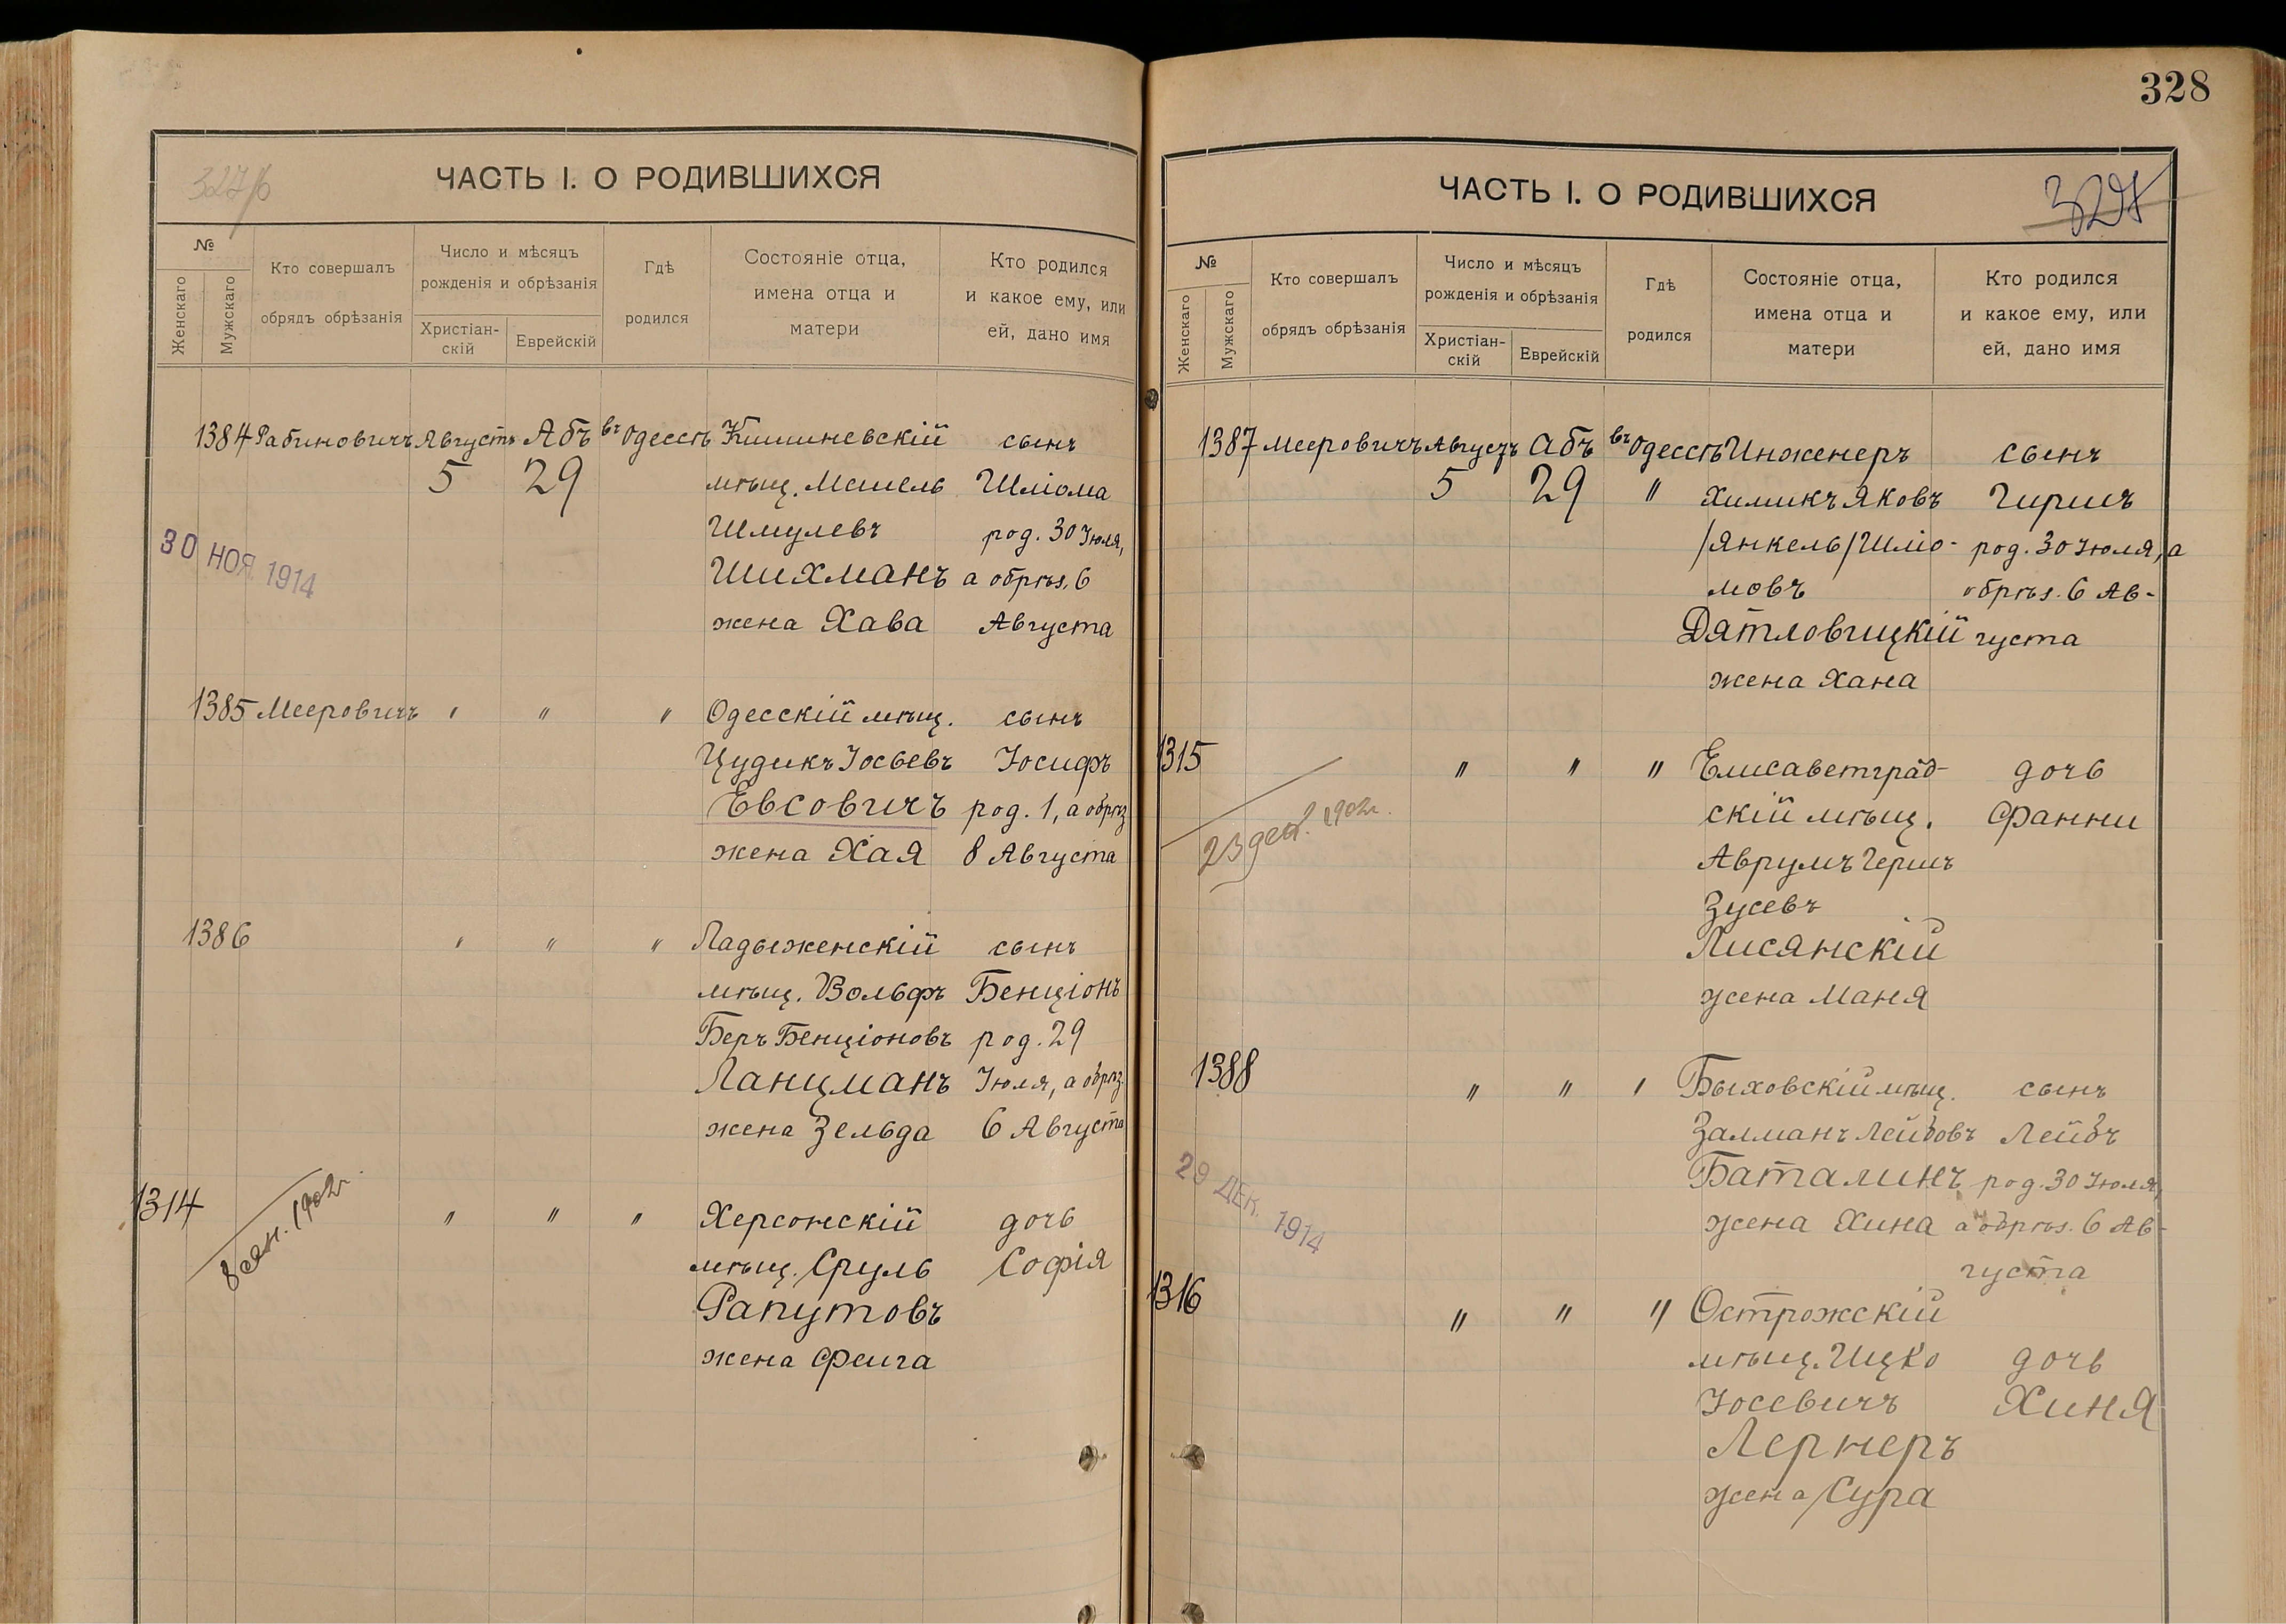 328
327/б
ЧАСТЬ I. О РОДИВШИХСЯ
№
Женскаго
Мужскаго
Кто совершалъ
обрядъ обрѣзанія
Число и мѣсяцъ
рожденія и обрѣзанія
Христіан-
скій
Еврейскій
Гдѣ
родился
Состояніе отца,
имена отца и
матери
Кто родился
и какое ему, или
ей, дано имя
1384 Рабиновичъ Августъ Абъ въ Одессѣ Кишиневскій сынъ
5 29 мѣщ. Мошель Шліома
Шмулевъ род. 30 Іюля,
30 НОЯ 1914
Шихманъ а обрѣз. 6
жена Хава Августа
1385 Мееровичъ " " " Одесскій мѣщ. сынъ
Цудикъ Іосьевъ Іосифъ
Евсовичъ род. 1, а обрѣз
жена Хая 8 Августа
1386 " " " Ладыженскій сынъ
мѣщ. Вольфъ Бенціонъ
Беръ Бенціоновъ род. 29
Ланцманъ Іюля, а обрѣз.
жена Зельда 6 Августа
1314 " " " Херсонскій дочь
8 янв. 1902г.
мѣщ. Сруль Софія
Рапутовъ
жена Фейга
ЧАСТЬ I. О РОДИВШИХСЯ
328
№
Женскаго
Мужскаго
Кто совершалъ
обрядъ обрѣзанія
Число и мѣсяцъ
рожденія и обрѣзанія
Христіан-
скій
Еврейскій
Гдѣ
родился
Состояніе отца,
имена отца и
матери
Кто родился
и какое ему, или
ей, дано имя
1387 Мееровичъ Августъ Абъ въ Одессѣ Инженеръ сынъ
5 29 " Химикъ Яковъ Гиршъ
/Янкель/ Шліо- род. 30 Іюля, а
мовъ обрѣз. 6 Ав-
Дятловицкій густа
жена Хана
1315 " " " Елисаветград- дочь
23 дек. 1902г.
скій мѣщ. Фанни
Аврумъ Гершъ
Зусевъ
Лисянскій
жена Маня
1388 " " " Быховскій мѣщ. сынъ
Залманъ Лейбовъ Лейбъ
29 ДЕК. 1914
Баталинъ род. 30 Іюля,
жена Хина а обрѣз. 6 Ав-
густа
1316 " " " Острожскій
мѣщ. Ицко дочь
Іосевичъ Хиня
Лернеръ
жена Сура